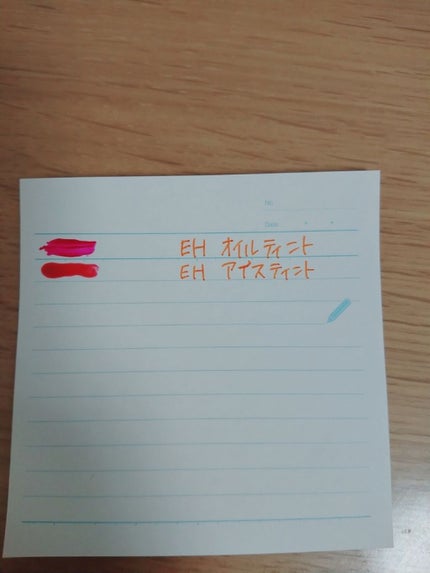 No.
Date
EH オイルティント
EH アイスティント